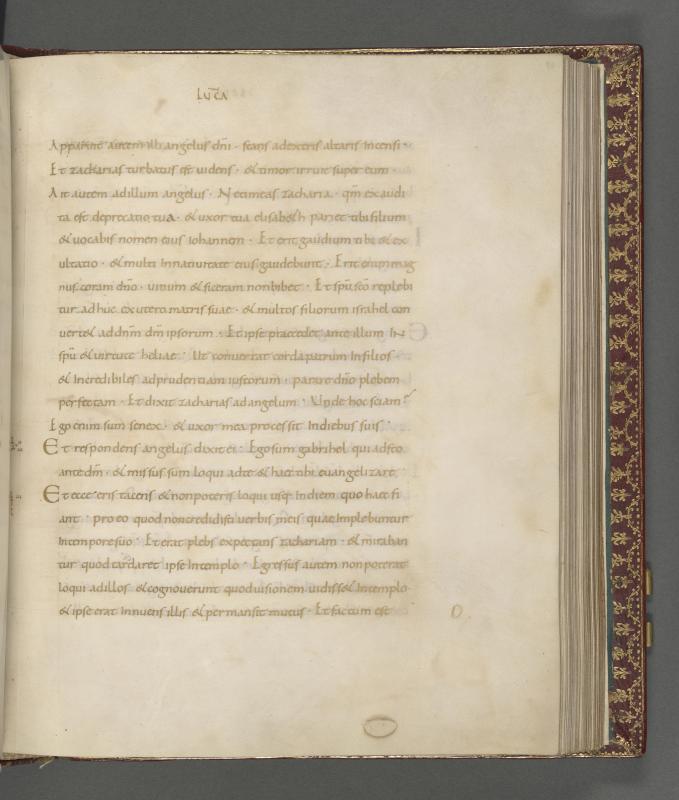 LUCA
Apparuit autem illi angelus dn̄i · stans adextris altaris Incensi ·
Et zacharias turbatus est uidens · et timor irruit super eum
Ait autem adillum angelus · Netimeas zacharia · qm̄ exaudi
ta est deprecatio tua · et uxor tua elisabeth pariet tibi filium
et uocabis nomen eius Iohannem · Et erit gaudium tibi et ex
ultatio · et multi Innatiuitate eius gaudebunt · Erit enim mag
nus coram dn̄o · uinum et siceram nonbibet · Et spū scō replebi
tur adhuc exutero matris suae · et multos filiorum israhel con
uertet addn̄m dm̄ ipsorum · Et ipse praecedet ante illum IN
spū et uirtute heliae · Ut conuertat corda patrum Infilios ·
et Incredibiles adprudentiam iustorum · parare dn̄o plebem
perfectam · Et dixit zacharias adangelum · Unde hoc sciam
Ego enim sum senex · et uxor mea processit Indiebus suis ·
Et respondens angelus dixit ei · Ego sum gabrihel qui adsto
ante dm̄ · et missus sum loqui adte et haec tibi euangelizare
Et ecce eris tacens et nonpoteris loqui usq· Indiem quo haec fi
ant · pro eo quod noncredidisti uerbis meis quae Implebuntur
Intempore suo · Et erat plebs expectans zachariam · et miraban
tur quod tardaret ipse Intemplo · Egressus autem nonpoterat
loqui adillos et cognouerunt quod uisionem uidisset Intemplo
et ipse erat Innuens illis et permansit mutus · Et factum est